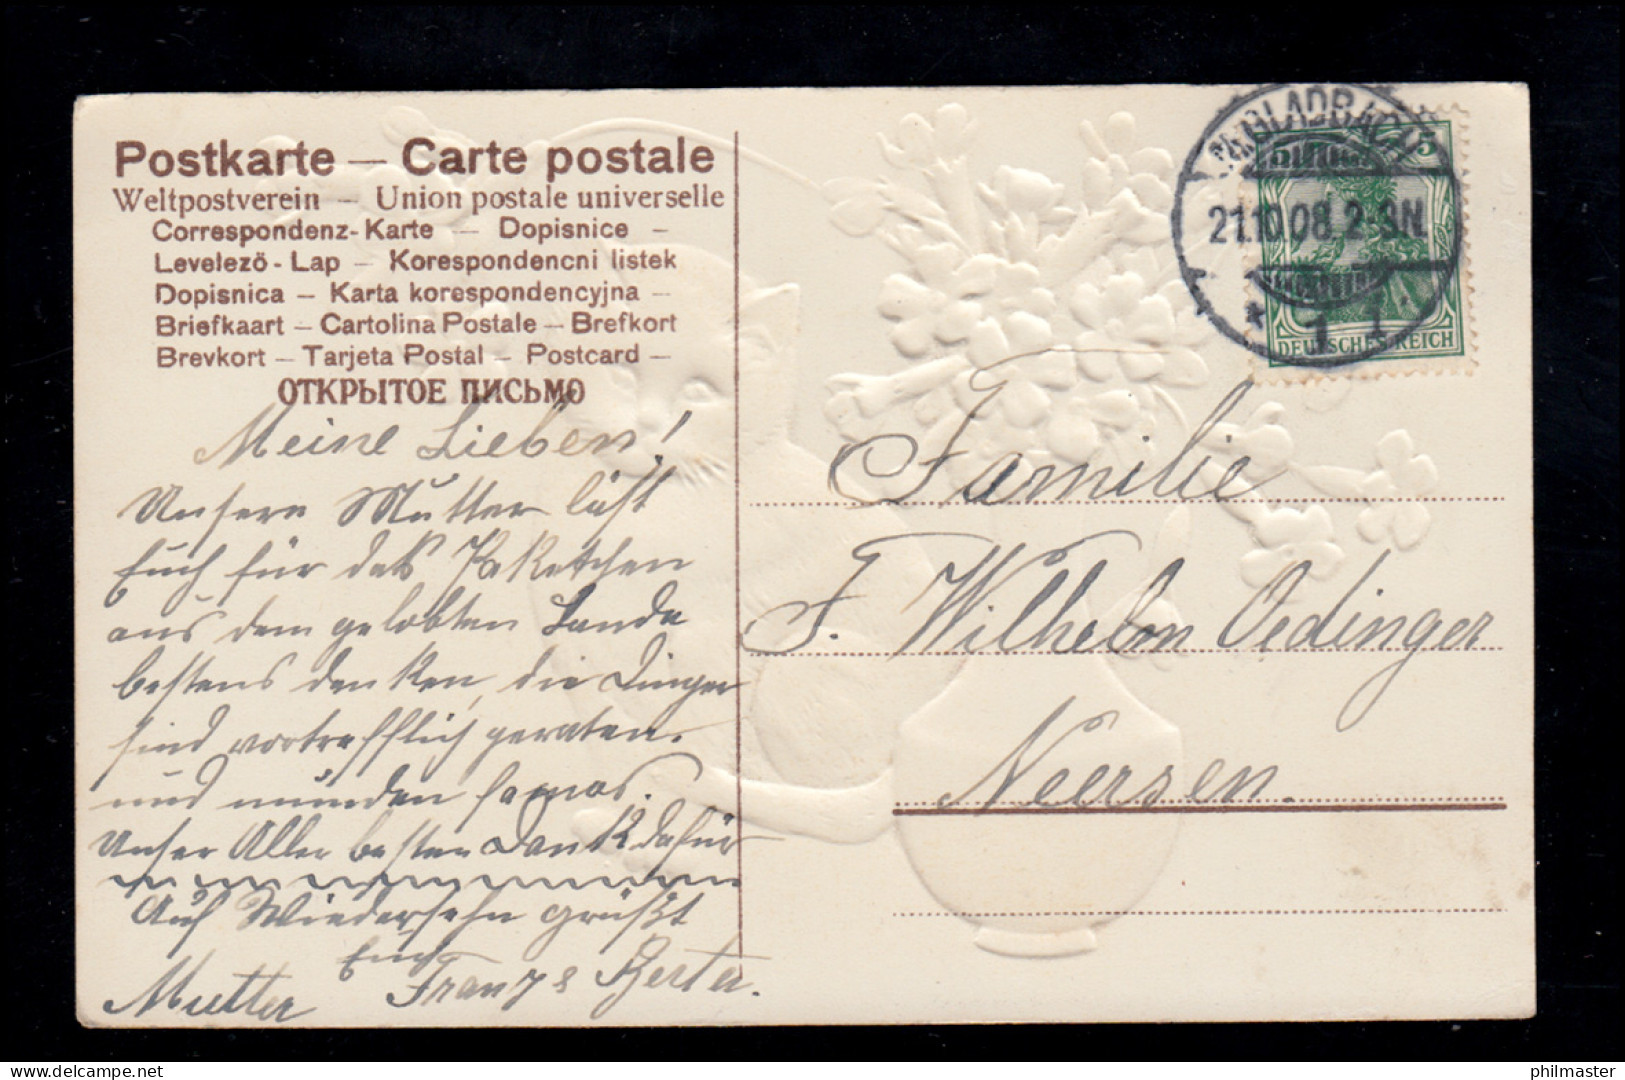 Postkarte — Carte postale
Weltpostverein — Union postale universelle
Correspondenz-Karte — Dopisnice —
Levelező - Lap — Korespondencni listek
Dopisnica — Karta korespondencyjna —
Briefkaart — Cartolina Postale — Brefkort
Brevkort — Tarjeta Postal — Postcard —
ОТКРЫТОЕ ПИСЬМО
Meine Lieben!
Unsere Mutter läßt
Euch für das Paketchen
aus dem gelobten Lande
bestens danken, die Dinger
sind vortrefflich geraten.
und munden famos.
Unser Aller besten Dank dafür
Auf Wiedersehn grüßt
Euch
Mutter Franz & Berta.
M.GLADBACH
21.10.08. 2-3N.
* 1 i.
5
DEUTSCHES REICH
Familie
F. Wilhelm Oedinger
Neersen.
delcampe.net
philmaster